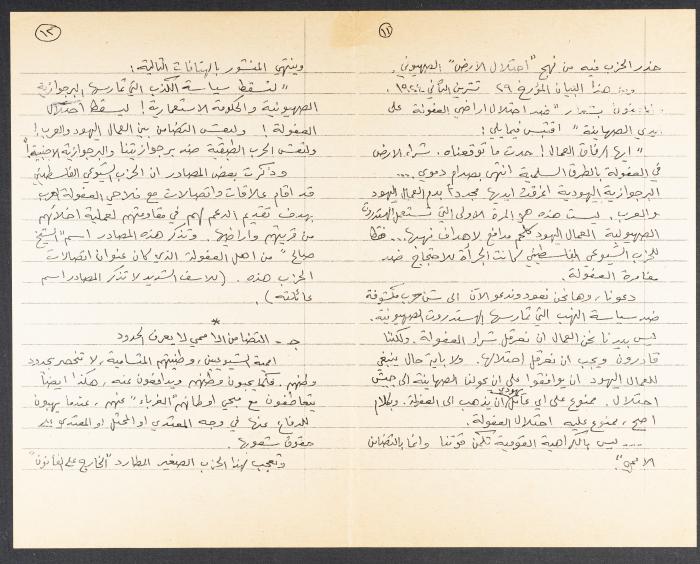 ١١
حذر الحزب فيه من نهج "احتلال الارض" الصهيوني.
هذا البيان المؤرخ ٢٩ تشرين الثاني
بشعار "ضد احتلال اراضي العفولة على
يدي الصهاينة" اقتبس فيما يلي:
"ايها الرفاق العمال! حدث ما توقعناه. شراء الارض
في العفولة بالطرق السلمية انتهى بصدام دموي ...
البرجوازية اليهودية اغرقت ايديها مجددًا بدم العمال اليهود
والعرب. ليست هذه هي المرة الاولى التي تستعمل الهستدروت
الصهيونية العمال اليهود كلحم مدافع لاهداف نهبها... فقط
للحزب الشيوعي الفلسطيني كانت الجرأة للاحتجاج ضد
مغامرة العفولة.
دعونا، وها نحن نعود وندعو الآن الى شن حرب مكشوفة
ضد سياسة النهب التي تمارسها الهستدروت الصهيونية.
ليس بيدنا نحن العمال ان نعرقل شراء العفولة. ولكننا
قادرون ويجب ان نعرقل احتلالها.. ولا باية حال ينبغي
للعمال اليهود ان يوافقوا على ان يحولنا الصهاينة الى جيش
احتلال. ممنوع على اي عامل يهودي ان يذهب الى العفولة. وبكلام
اصح، ممنوع عليه احتلال العفولة.
... ليس بالكراهية القومية تكمن قوتنا وانما بالتضامن
الاممي".
١٢
وينتهي المنشور بالهتافات التالية:
"لتسقط سياسة الكذب التي تمارسها البرجوازية
الصهيونية والحكومة الاستعمارية! ليسقط احتلال
العفولة! وليعش التضامن بين العمال اليهود والعرب!
ولتعش الحرب الطبقية ضد برجوازيتنا والبرجوازية الاجنبية!"
وذكرت بعض المصادر ان الحزب الشيوعي الفلسطيني
قد اقام علاقات واتصالات مع فلاحي العفولة العرب
بهدف تقديم الدعم لهم في مقاومتهم لعملية اجلائهم
من قريتهم واراضيها. وتذكر هذه المصادر اسم "الشيخ
صالح" من اهل العفولة الذي كان عنوان اتصالات
الحزب هذه. (للاسف الشديد لا تذكر المصادر اسم
عائلته).
*
جـ - التضامن الاممي لا يعرف الحدود
اممية الشيوعيين، وطنيتهم المتسامية، لا تنحصر بحدود
وطنهم. فكما يحبون وطنهم ويدافعون عنه، هكذا ايضًا
يتعاطفون مع محبي اوطانهم "الغرباء" عنهم، عندما يهبون
للدفاع عنها في وجه المعتدي او المحتل او المعتدي بيد
حقوق شعوبها.
وتعجب لهذا الحزب الصغير المطارد "الخارج على القانون"